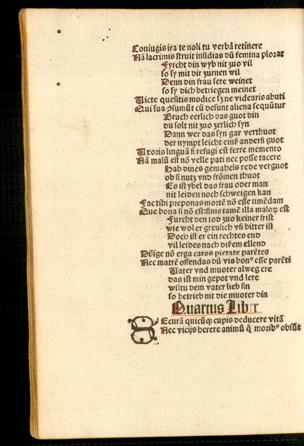 Coniugis ira te noli tu verbā retinere
Nā lacrimis struit insidias dū femina plorat
Fyrcht din wyb nit zuo vil
so sy mit dir zurnen wil
Denn din frau sere weinet
so sy dich betriegen meinet
Utere quesitis modice ſz ne videaris abuti
Qui sua ꝯsumūt cū desunt aliena sequūtur
Bruch eerlich das guot din
du solt nit zuo zerlich syn
Dann wer das syn gar verthuot
der nympt leicht eins andern guot
Uxoris linguā si frugi est ferre memento
Nā malū est nō velle pati nec posse tacere
Hab dines gemahels rede verguot
ob si nutz vnd frömen thuot
Es ist ybel das frau oder man
nit leiden noch schweigen kan
Fac tibi preponas mortē nō esse timēdam
Que bona si nō est finis tamē illa maloꝝ est
Furcht den tod zuo keiner frist
wie wol er greulich vñ bitter ist
Doch ist er ein rechtes end
vil leides nach disem ellend
Dilige nō egra caros pietate parētes
Nec matrē offendas dū vis bonꝰ esse parēti
Uater vnd muoter alweg ere
das ist min gepot vnd lere
wiltu dem vater lieb sin
so betrieb nit die muoter din
Quartus Liber
Securā quicūqꝫ cupis deducere vitā
Nec vicijs herere animū q̄ moribꝰ obsūt